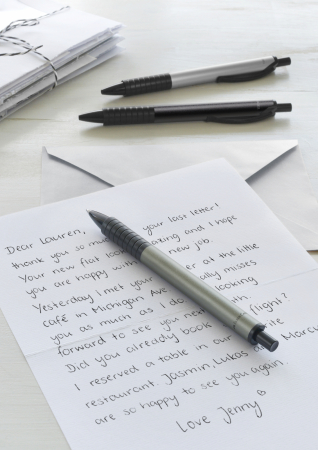 Dear Lauren,
thank you so your last letter!
Your new flat and I hope
you are happy new job.
Yesterday I met your at the little
café in Michigan Ave misses
you as much as I do looking
forward to see you next
Did you already book flight?
I reserved a table in our
restaurant. Jasmin, Lukas Marcu
are so happy to see you again
Love Jenny